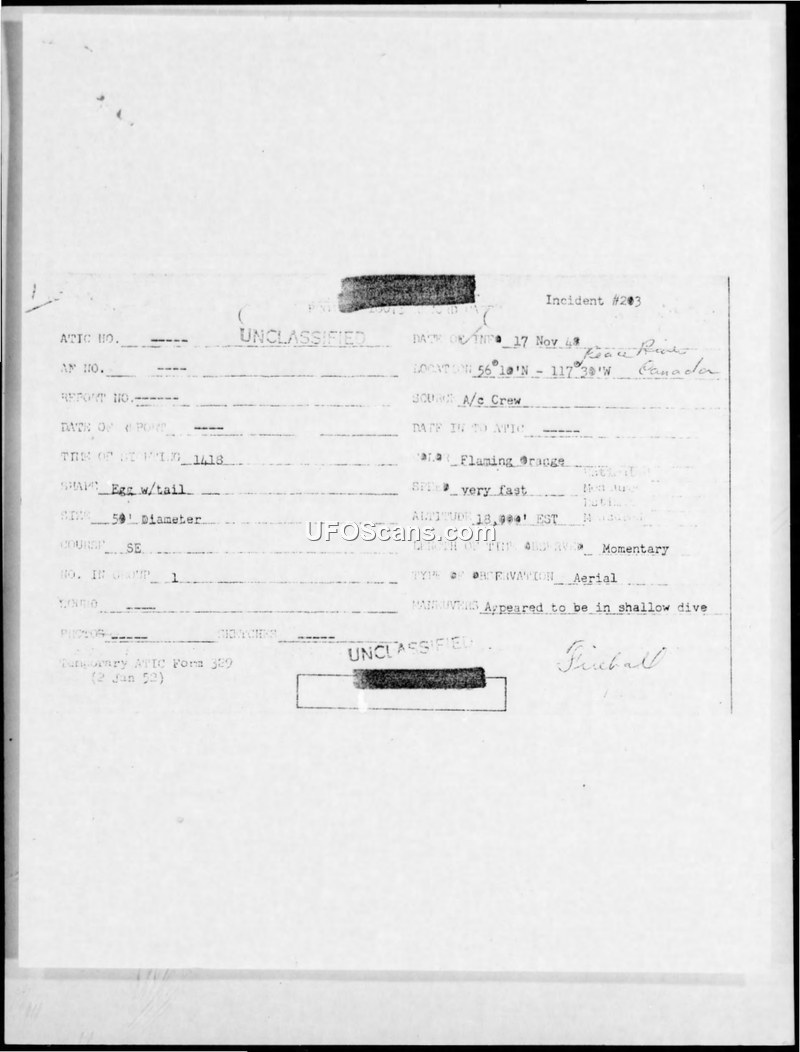 Incident #203
UNCLASSIFIED
ATIC NO. -----
DATE OF INFO 17 Nov 48
AF NO. ----
LOCATION 56°10'N - 117°30'W Peace River Canada
REPORT NO. ------
SOURCE A/c Crew
DATE OF REPORT ----
DATE IN TO ATIC -----
TIME OF SIGHTING 1418
COLOR Flaming Orange
SHAPE Egg w/tail
SPEED very fast
SIZE 50' Diameter
ALTITUDE 18,000' EST
COURSE SE
LENGTH OF TIME OBSERVED Momentary
NO. IN GROUP 1
TYPE OF OBSERVATION Aerial
SOUND ----
MANEUVERS Appeared to be in shallow dive
PHOTOS ----- SKETCHES -----
Temporary ATIC Form 329
(2 Jan 52)
UNCLASSIFIED
Fireball
UFOScans.com